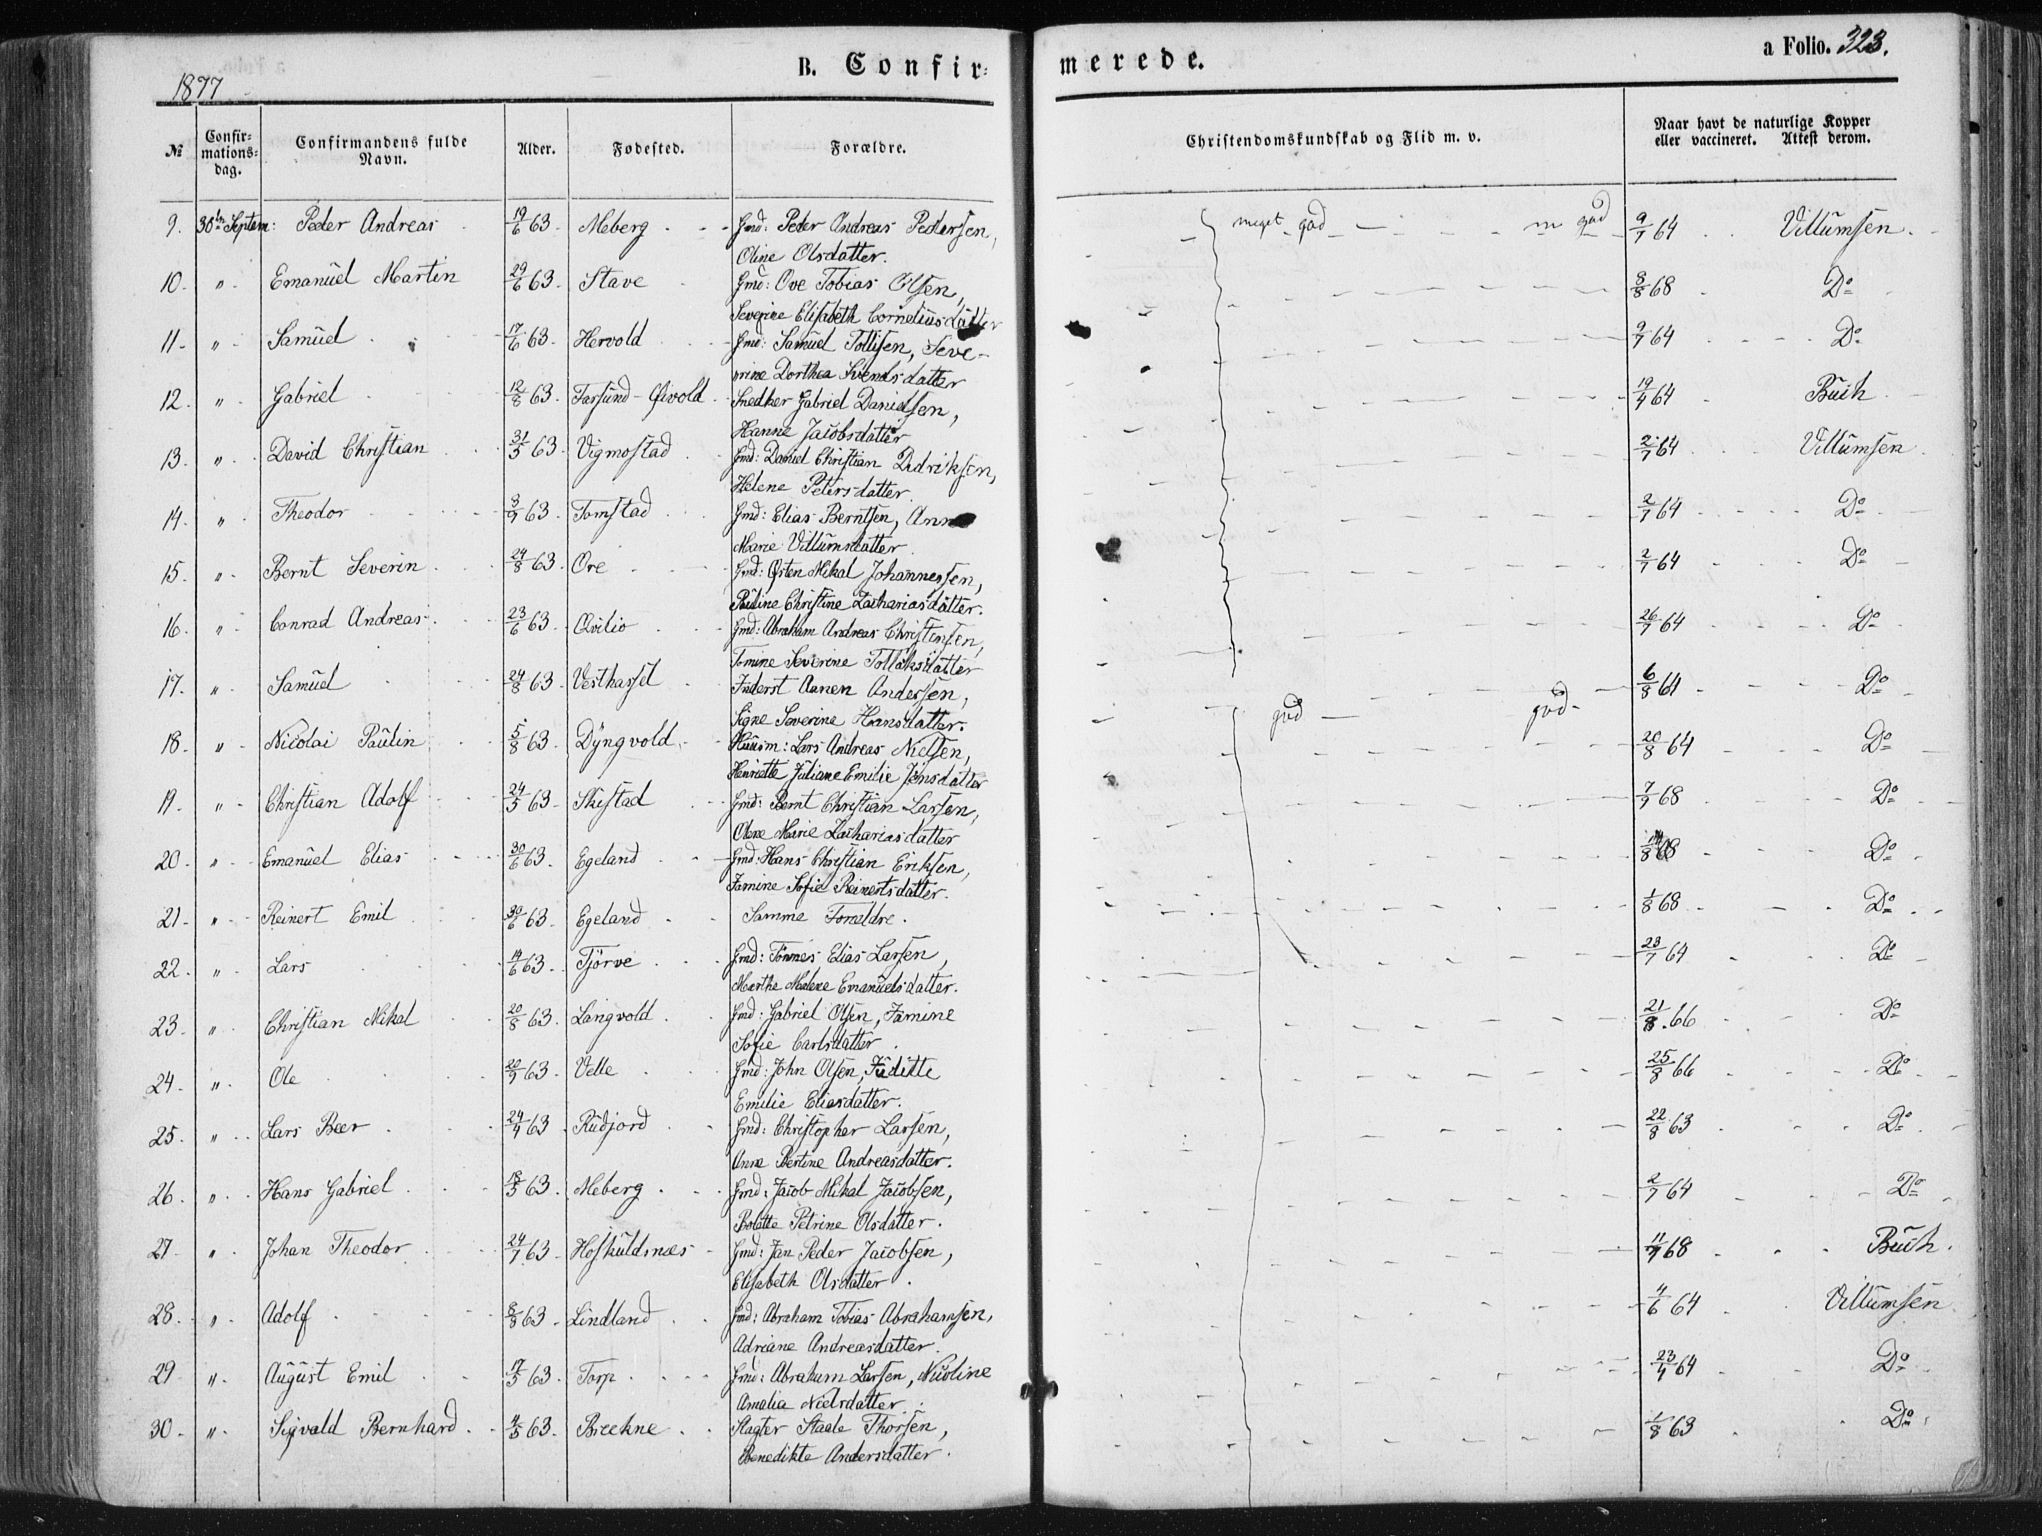 1877
B. Confir- merede.
a Folio. 323.
№ Confir- mations- dag. Confirmandens fulde Navn. Alder. Fødested. Forældre. Christendomskundskab og Flid m. v. Naar havt de naturlige Kopper eller vaccineret. Attest derom.
9. 30te Septem: Peder Andreas 19/6 63 Meberg Gmd: Peder Andreas Pedersen, meget god m god 9/7 64 Villumsen
Oline Olsdatter.
10. " Emanuel Martin 29/6 63 Stave Gmd: Ove Tobias Olsen, 8/8 68 Do
Severine Elisabeth Corneliusdatter
11. " Samuel 17/6 63 Hervold Gmd: Samuel Tollisen, Seve- 9/7 64 Do
rine Dorthea Svendsdatter
12. " Gabriel 12/8 63 Farsund-Øivold Snedker Gabriel Danielsen, 19/4 64 Buch
Hanne Jacobsdatter
13. " David Christian 31/5 63 Vigmostad Gmd: Daniel Christian Didriksen, 2/7 64 Villumsen
Helene Petersdatter
14. " Theodor 3/7 63 Tomstad Gmd: Elias Berntsen, Anne 2/7 64 Do
Marie Villumsdatter
15. " Bernt Severin 24/8 63 Ore Gmd: Østen Mikal Johannessen, 2/7 64 Do
Pauline Christine Zachariasdatter.
16. " Conrad Andreas 23/6 63 Qvilio Gmd: Abraham Andreas Christensen, 26/7 64 Do
Tomine Severine Tollaksdatter
17. " Samuel 24/8 63 Vesthassel Inderst Aanen Andersen, god god 6/8 64 Do
Signe Severine Hansdatter.
18. " Nicolai Paulin 5/8 63 Dyngvold Huusm: Lars Andreas Nielsen, 20/8 64 Do
Henriette Juliane Emilie Jonsdatter
19. " Christian Adolf 24/5 63 Skistad Gmd: Bernt Christian Larsen, 7/7 68 Do
Olene Marie Zachariasdatter
20. " Emanuel Elias 30/6 63. Egeland Gmd: Hans Christian Eriksen, 68 Do
Jamine Sofie Reinertsdatter.
21. " Reinert Emil 30/6 63. Egeland Samme Forældre. 1/8 68 Do
22. " Lars 14/6 63. Tjørve Gmd: Tønnes Elias Larsen, 23/7 64 Do
Marthe Malene Emanuelsdatter.
23. " Christian Mikal 20/8 63. Langvold Gmd: Gabriel Olsen, Jamine 21/8 66 Do
Sofie Carlsdatter.
24. " Ole 20/7 63. Velle Gmd: John Olsen, Juditte 25/8 66 Do
Emilie Eliasdatter.
25. " Lars Beer 24/4 63 Rudjord Gmd: Christopher Larsen, 22/8 63 Do
Anne Bertine Andreasdatter.
26. " Hans Gabriel 18/5 63. Meberg Gmd: Jacob Mikal Jacobsen, 2/7 64 Do
Bolette Petrine Olsdatter.
27. " Johan Theodor 24/7 63. Høskuldsnæs Gmd: Jan Peder Jacobsen, 68 Buch.
Elisabeth Olsdatter.
28. " Adolf 8/8 63. Lindland Gmd: Abraham Tobias Abrahamsen, 4/6 64 Villumsen
Adriane Andreasdatter.
29. " August Emil 17/5 63. Torp Gmd: Abraham Larsen, Nicoline 23/4 64 Do
Amalia Nielsdatter.
30. " Sigvald Bernhard 4/5 63. Brekne Slagter Staale Thorsen, 1/8 63 Do
Benedikte Andersdatter.